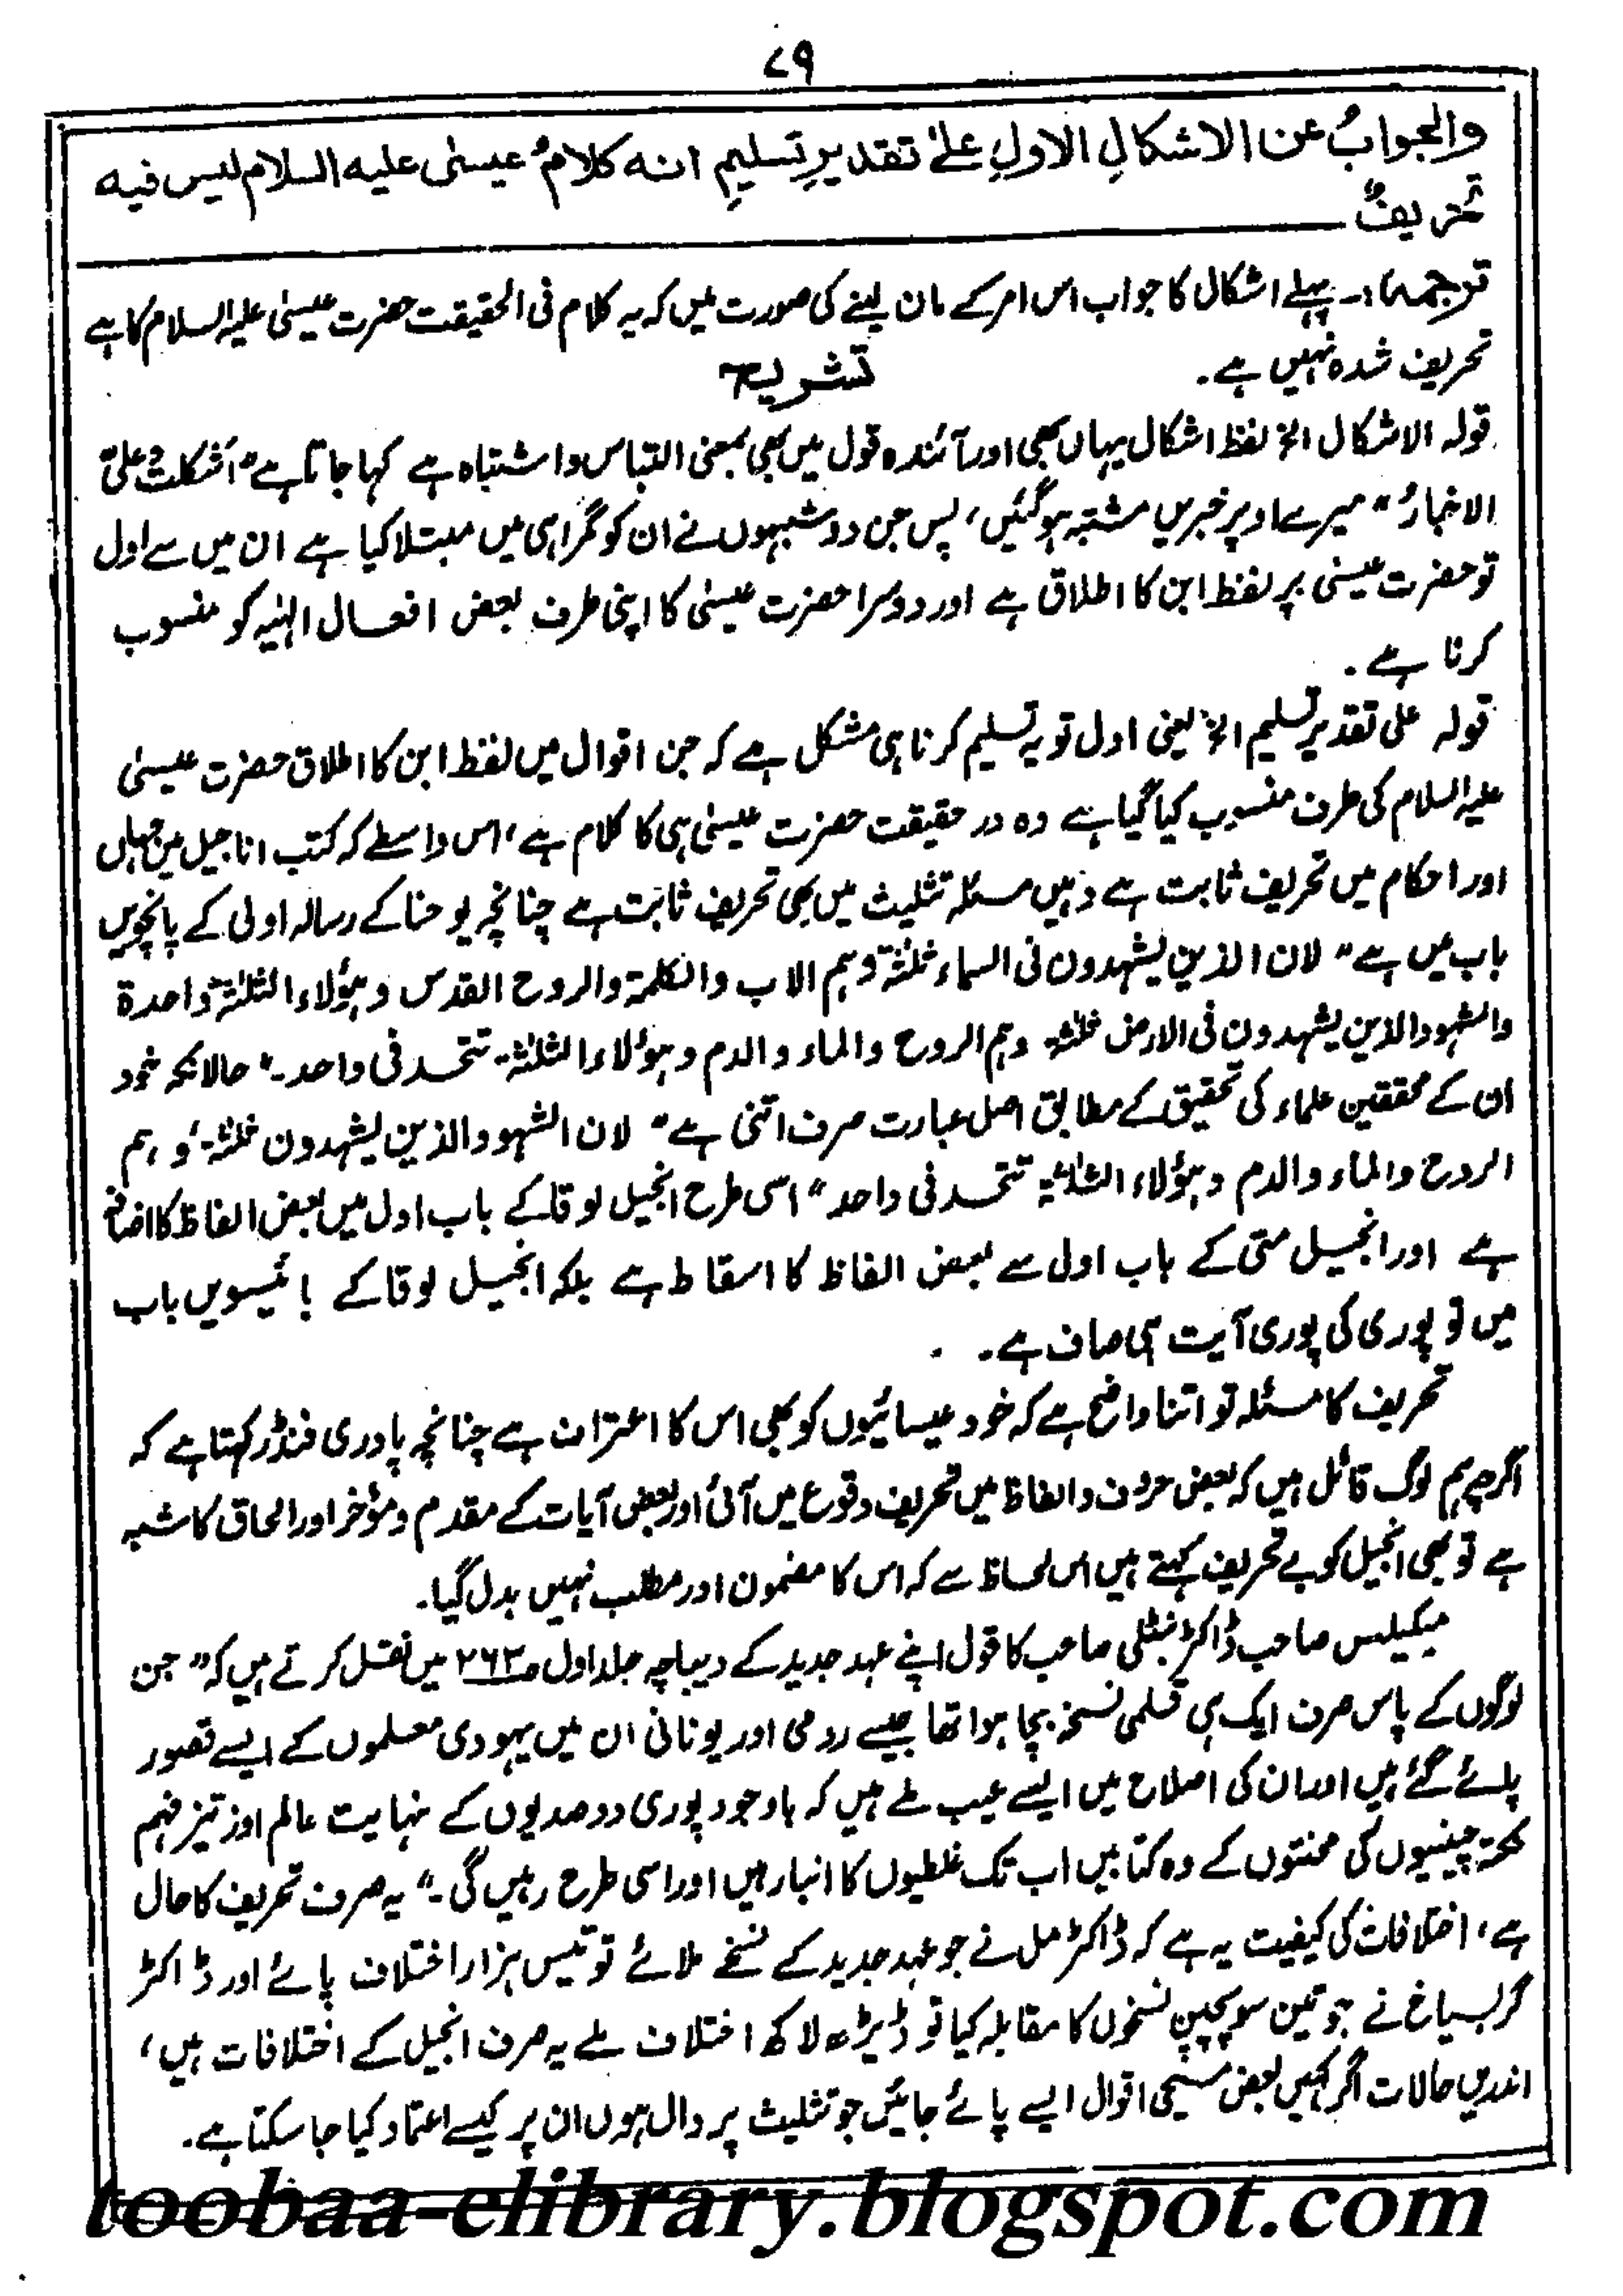 ۷۹
والجوابُ عن الاشکالِ الاولِ علیٰ تقدیرِ تسلیمِ انہ کلامُ عیسیٰ علیہ السلام لیس فیہ
تحریفٌ
ترجمہ:۔ پہلے اشکال کا جواب اس امر کے مان لینے کی صورت میں کہ یہ کلام فی الحقیقت حضرت عیسیٰ علیہ السلام کا ہے
تحریف شدہ نہیں ہے۔
تشریح
قولہ الاشکال الخ لفظ اشکال یہاں بھی اور آئندہ قول میں بھی بمعنی التباس واشتباہ ہے کہا جاتا ہے "اَشکلتْ علیَّ
الاخبارُ" میرے اوپر خبریں مشتبہ ہوگئیں، پس جن دو شبہوں نے ان کو گمراہی میں مبتلا کیا ہے ان میں سے اول
تو حضرت عیسیٰ پر لفظ ابن کا اطلاق ہے اور دوسرا حضرت عیسیٰ کا اپنی طرف بعض افعال الٰہیہ کو منسوب
کرنا ہے۔
قولہ علی تقدیر تسلیم الخ یعنی اول تو یہ تسلیم کرنا ہی مشکل ہے کہ جن اقوال میں لفظ ابن کا اطلاق حضرت عیسیٰ
علیہ السلام کی طرف منسوب کیا گیا ہے وہ در حقیقت حضرت عیسیٰ ہی کا کلام ہے، اس واسطے کہ کتب اناجیل میں جہاں
اور احکام میں تحریف ثابت ہے وہیں مسئلہ تثلیث میں بھی تحریف ثابت ہے چنانچہ یوحنا کے رسالہ اولی کے پانچویں
باب میں ہے "لان الذین یشہدون فی السماء ثلثۃ وہم الاب والکلمۃ والروح القدس وہؤلاء الثلثۃ واحدۃ
والشہود الذین یشہدون فی الارض ثلثۃ وہم الروح والماء والدم وہؤلاء الثلثۃ تتحد فی واحد۔" حالانکہ خود
ان کے محققین علماء کی تحقیق کے مطابق اصل عبارت صرف اتنی ہے "لان الشہود الذین یشہدون ثلثۃ وہم
الروح والماء والدم وہؤلاء الثلثۃ تتحد فی واحد" اسی طرح انجیل لوقا کے باب اول میں بعض الفاظ کا اضافہ
ہے اور انجیل متی کے باب اول سے بعض الفاظ کا اسقاط ہے بلکہ انجیل لوقا کے بائیسویں باب
میں تو پوری کی پوری آیت ہی صاف ہے۔
تحریف کا مسئلہ تو اتنا واضح ہے کہ خود عیسائیوں کو بھی اس کا اعتراف ہے چنانچہ پادری فنڈر کہتا ہے کہ
اگرچہ ہم لوگ قائل ہیں کہ بعض حروف والفاظ میں تحریف وقوع میں آئی اور بعض آیات کے مقدم ومؤخر اور الحاق کا شبہ
ہے تو بھی انجیل کو بے تحریف کہتے ہیں اس لحاظ سے کہ اس کا مضمون اور مطلب نہیں بدل گیا۔
میکیلس صاحب ڈاکٹر بنٹلی صاحب کا قول اپنے عہد جدید کے دیباچہ جلد اول ص۲۶۳ میں نقل کرتے ہیں کہ "جن
لوگوں کے پاس صرف ایک ہی قلمی نسخہ بچا ہوا تھا جیسے رومی اور یونانی ان میں یہودی معلموں کے ایسے قصور
پائے گئے ہیں اور ان کی اصلاح میں ایسے عیب ملے ہیں کہ باوجود پوری دو صدیوں کے نہایت عالم اور تیز فہم
نکتہ چینیوں کی محنتوں کے وہ کتابیں اب تک غلطیوں کا انبار ہیں اور اسی طرح رہیں گی۔" یہ صرف تحریف کا حال
ہے، اختلافات کی کیفیت یہ ہے کہ ڈاکٹر مل نے جو عہد جدید کے نسخے ملائے تو تیس ہزار اختلاف پائے اور ڈاکٹر
گریسباغ نے جو تین سو پچپن نسخوں کا مقابلہ کیا تو ڈیڑھ لاکھ اختلاف ملے یہ صرف انجیل کے اختلافات ہیں،
اندریں حالات اگر کہیں بعض مسیحی اقوال ایسے پائے جائیں جو تثلیث پر دال ہوں ان پر کیسے اعتماد کیا جا سکتا ہے۔
toobaa-elibrary.blogspot.com